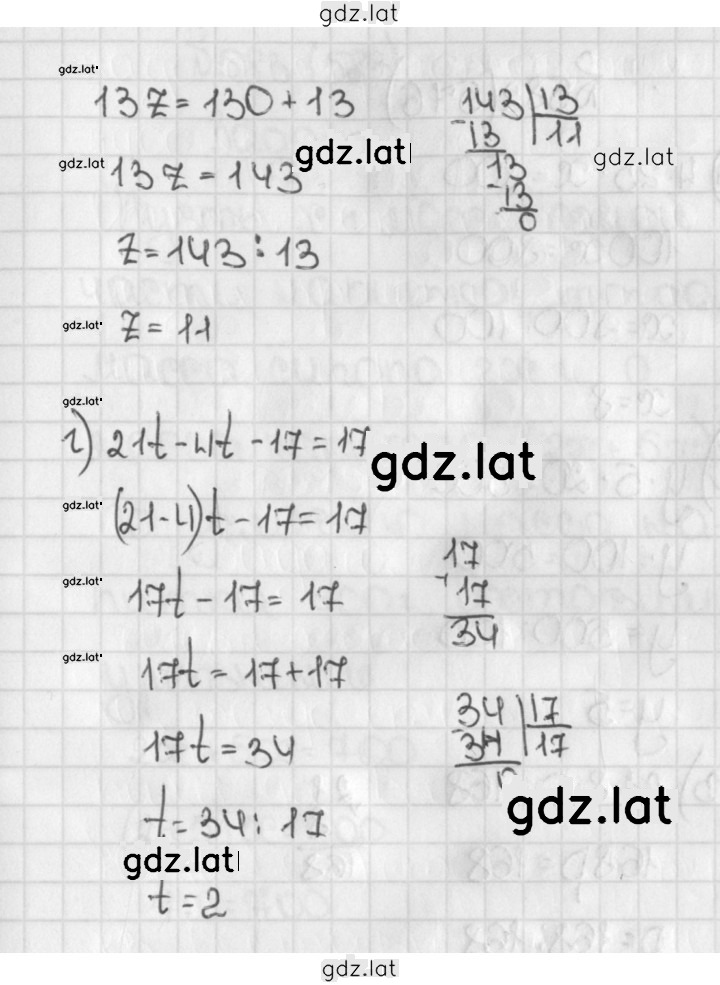 gdz.lat
gdz.lat
13z = 130 + 13
143 | 13
- 13 | 11
gdz.lat
gdz.lat
gdz.lat
13z = 143
13
- 13
0
z = 143 : 13
gdz.lat
z = 11
gdz.lat
г) 21t - 4t - 17 = 17
gdz.lat
gdz.lat
(21-4)t - 17 = 17
gdz.lat
17t - 17 = 17
17
+ 17
34
gdz.lat
17t = 17 + 17
17t = 34
34 | 17
- 34 | 17
gdz.lat
t = 34 : 17
gdz.lat
t = 2
gdz.lat